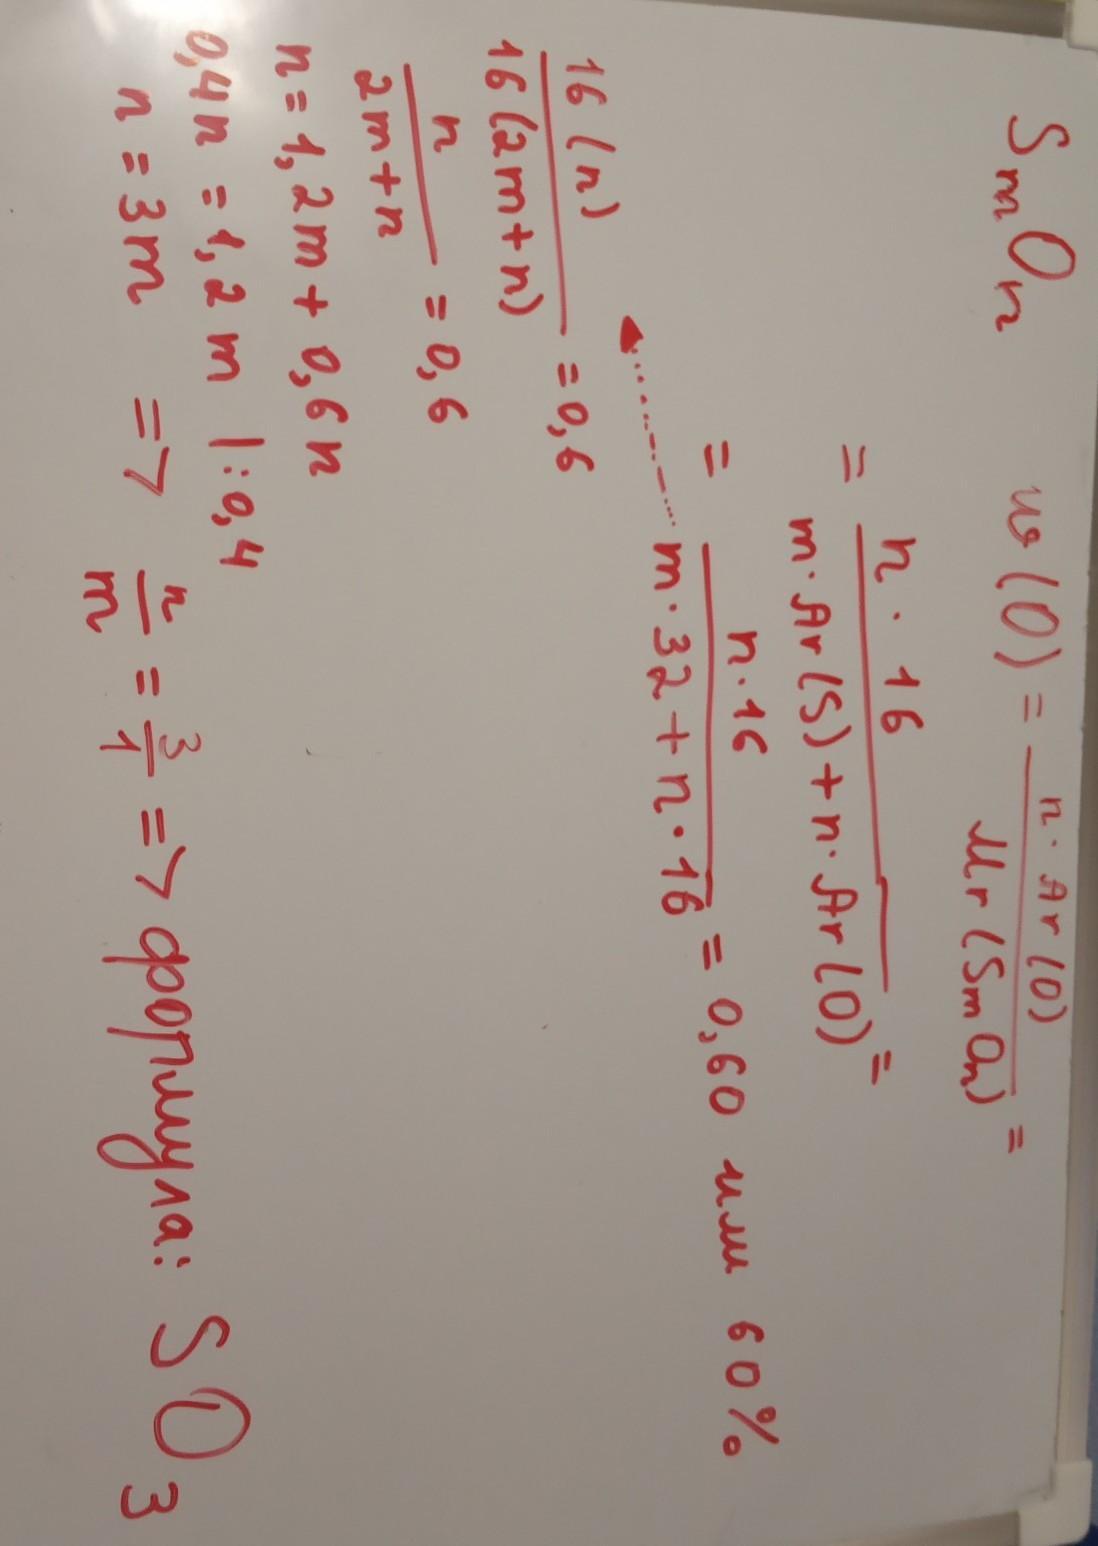 SmOn w(O) = n · Ar(O) / Mr(SmOn) =
= n · 16 / m · Ar(S) + n · Ar(O) =
= n · 16 / m · 32 + n · 16 = 0,60 или 60%
16(n) / 16(2m+n) = 0,6
n / 2m+n = 0,6
n = 1,2m + 0,6n
0,4n = 1,2m |:0,4
n = 3m => n/m = 3/1 => формула: SO3